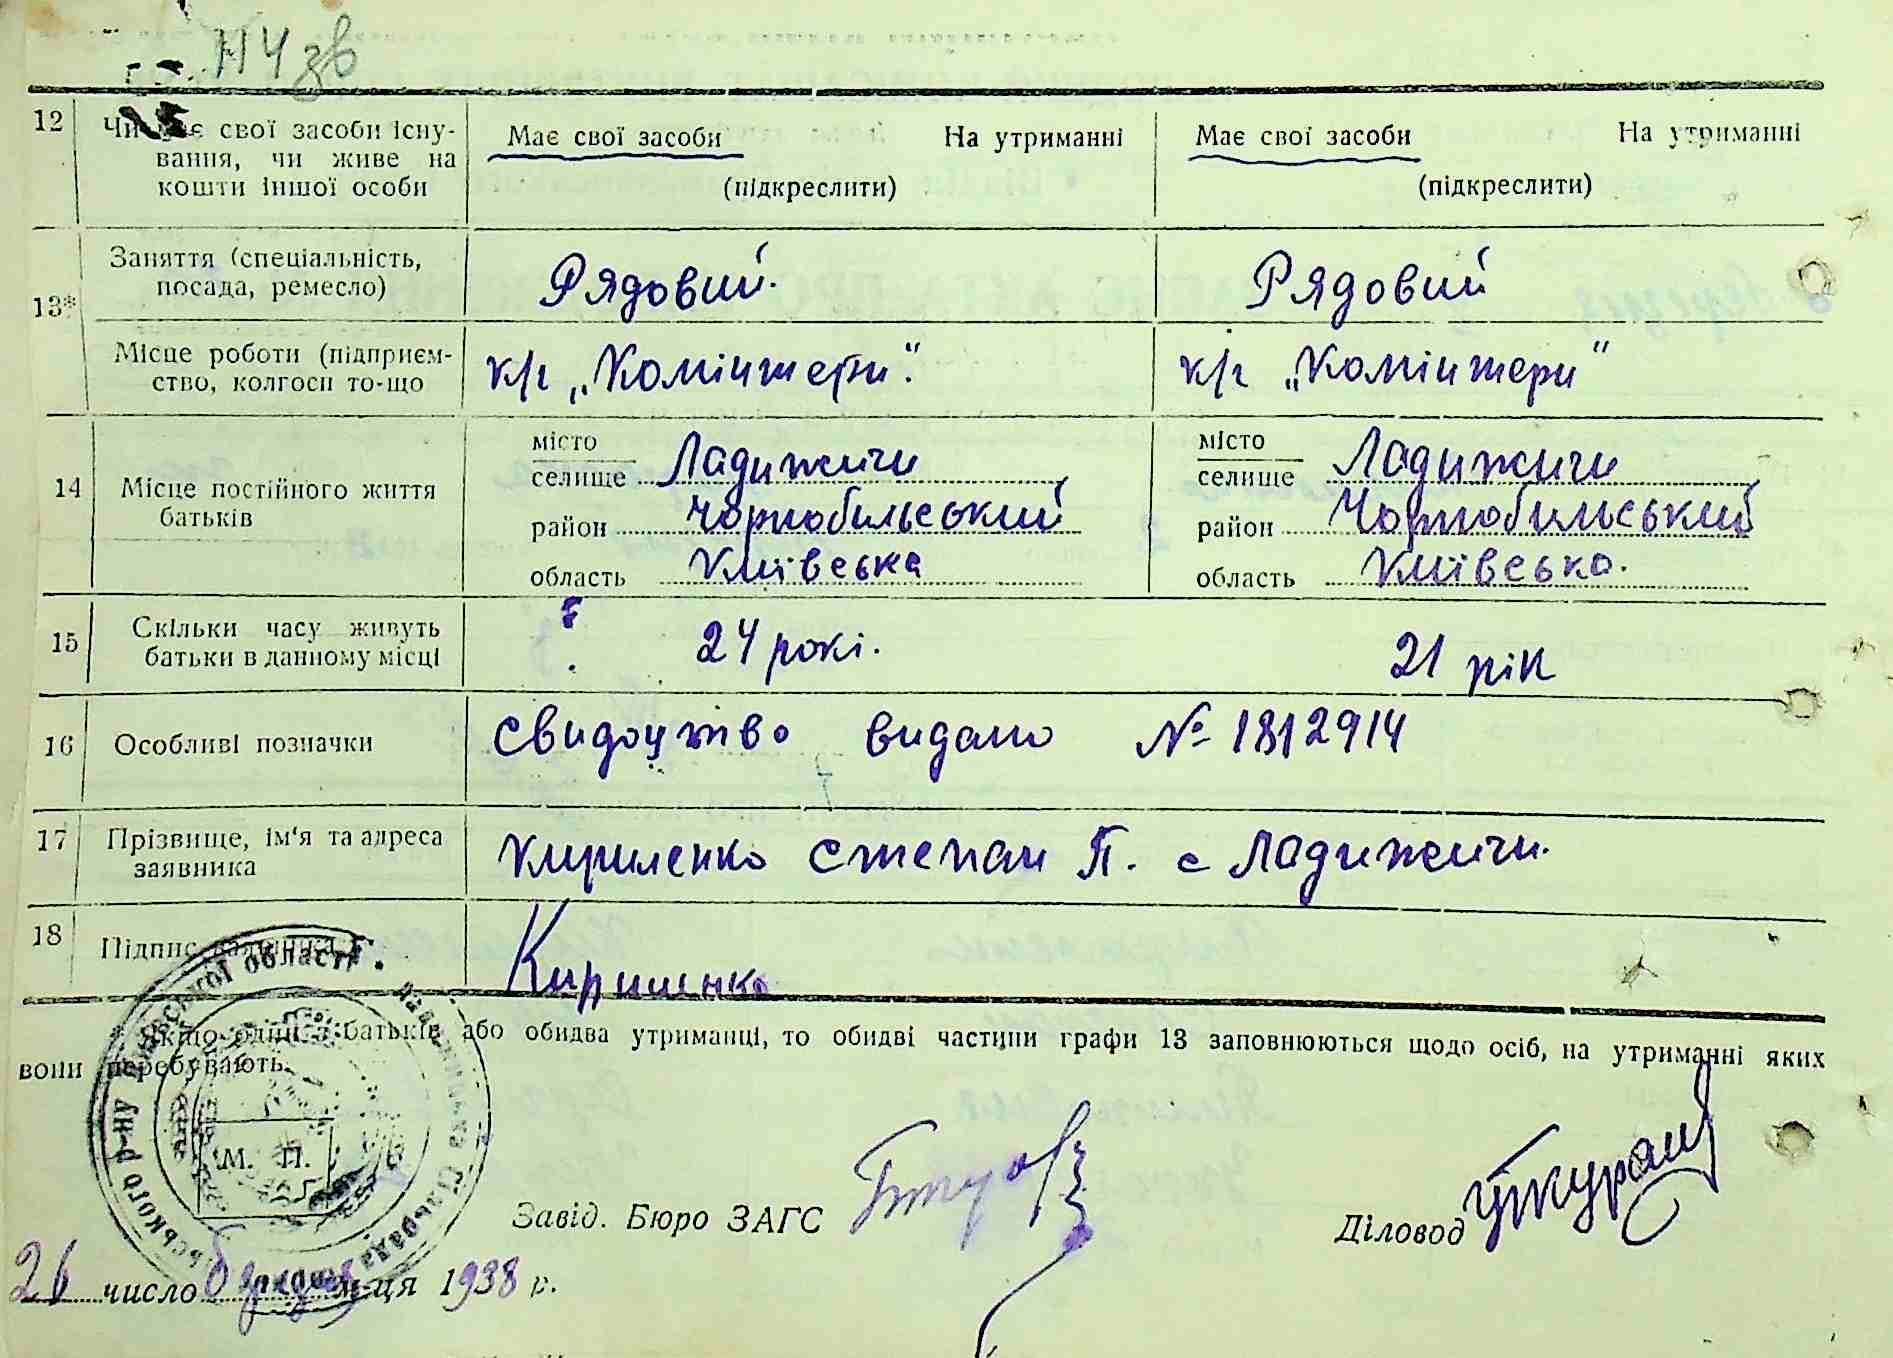 Н Ч зв
12 Чи має свої засоби існу- Має свої засоби На утриманні Має свої засоби На утриманні
вання, чи живе на
кошти іншої особи (підкреслити) (підкреслити)
13* Заняття (спеціальність, Рядовий. Рядовий
посада, ремесло)
Місце роботи (підприєм- к/г „Комінтерн". к/г „Комінтерн"
ство, колгосп то-що
14 Місце постійного життя батьків
місто місто
селище Ладижичи селище Ладижичи
район Чорнобильський район Чорнобильський
область Київська область Київська.
15 Скільки часу живуть 24 рокі. 21 рік
батьки в данному місці
16 Особливі позначки свидоцтво видано № 1812914
17 Прізвище, ім'я та адреса Кириленко Степан П. с Ладижичи.
заявника
18 Підпис заявника Кириленко
Якщо один з батьків або обидва утриманці, то обидві частини графи 13 заповнюються щодо осіб, на утриманні яких
вони перебувають.
М. П.
Завід. Бюро ЗАГС Діловод
26 число м-ця 1938 р.